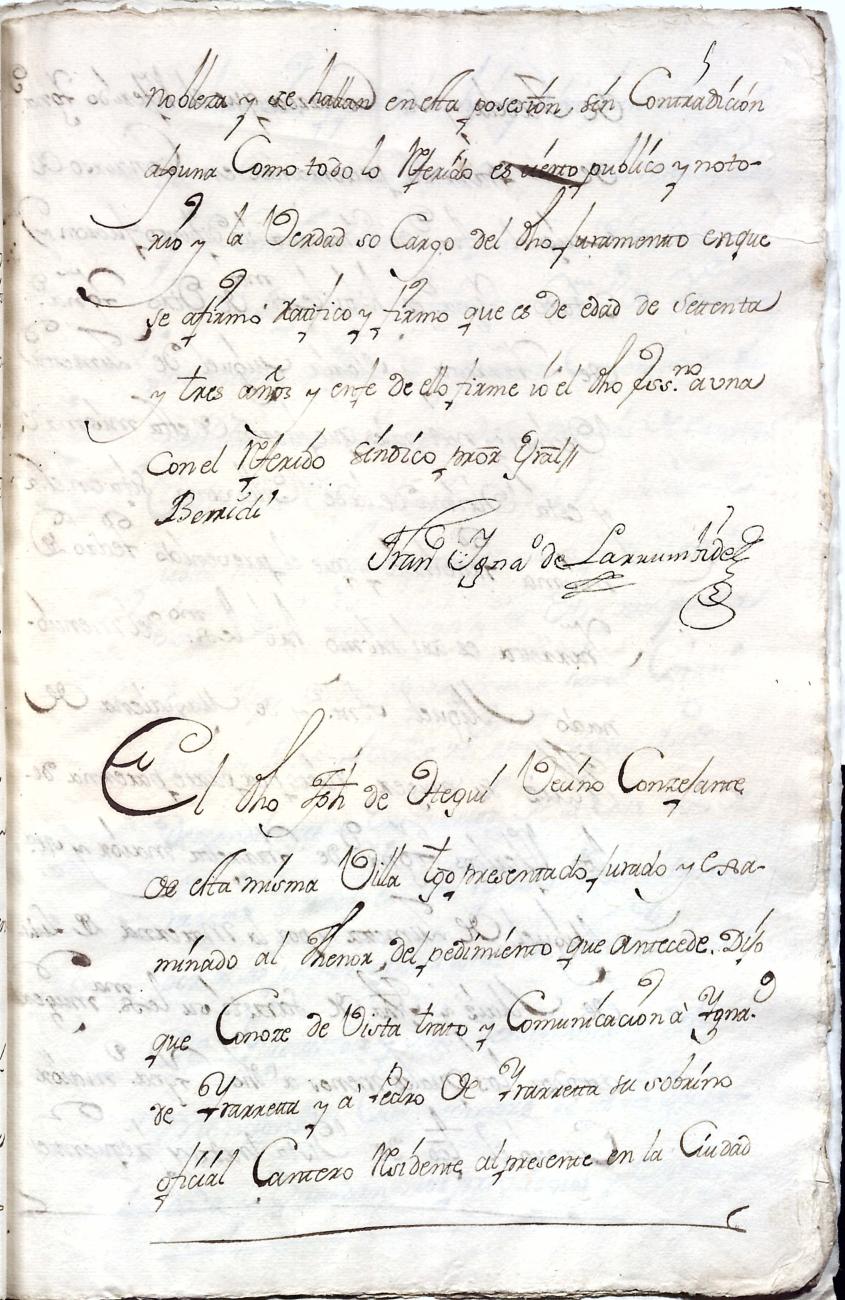 nobleza y se hallan en esta posesion sin Contradicion
alguna Como todo lo Referido es cierto publico y noto-
rio y la Verdad so Cargo del dho Juramento en que
se afirmó Ratifico y firmo que es de edad de settenta
y tres años y en fe de ello firme io el dho Ess.no a una
Con el Referido sindico pror Gral//
Berridi
Fran.co Ygna.o de Larrumbide
El dho Jph de Otegui Vecino Conzejante
de esta misma Villa tgo presentado jurado y Exa-
minado al thenor del pedimiento que antecede. Dijo
que Conoze de Vista trato y Comunicacion à Ygna.o
de Yrarreta y à Pedro de Yrarreta su sobrino
oficial Cantero Residente al presente en la Ciudad